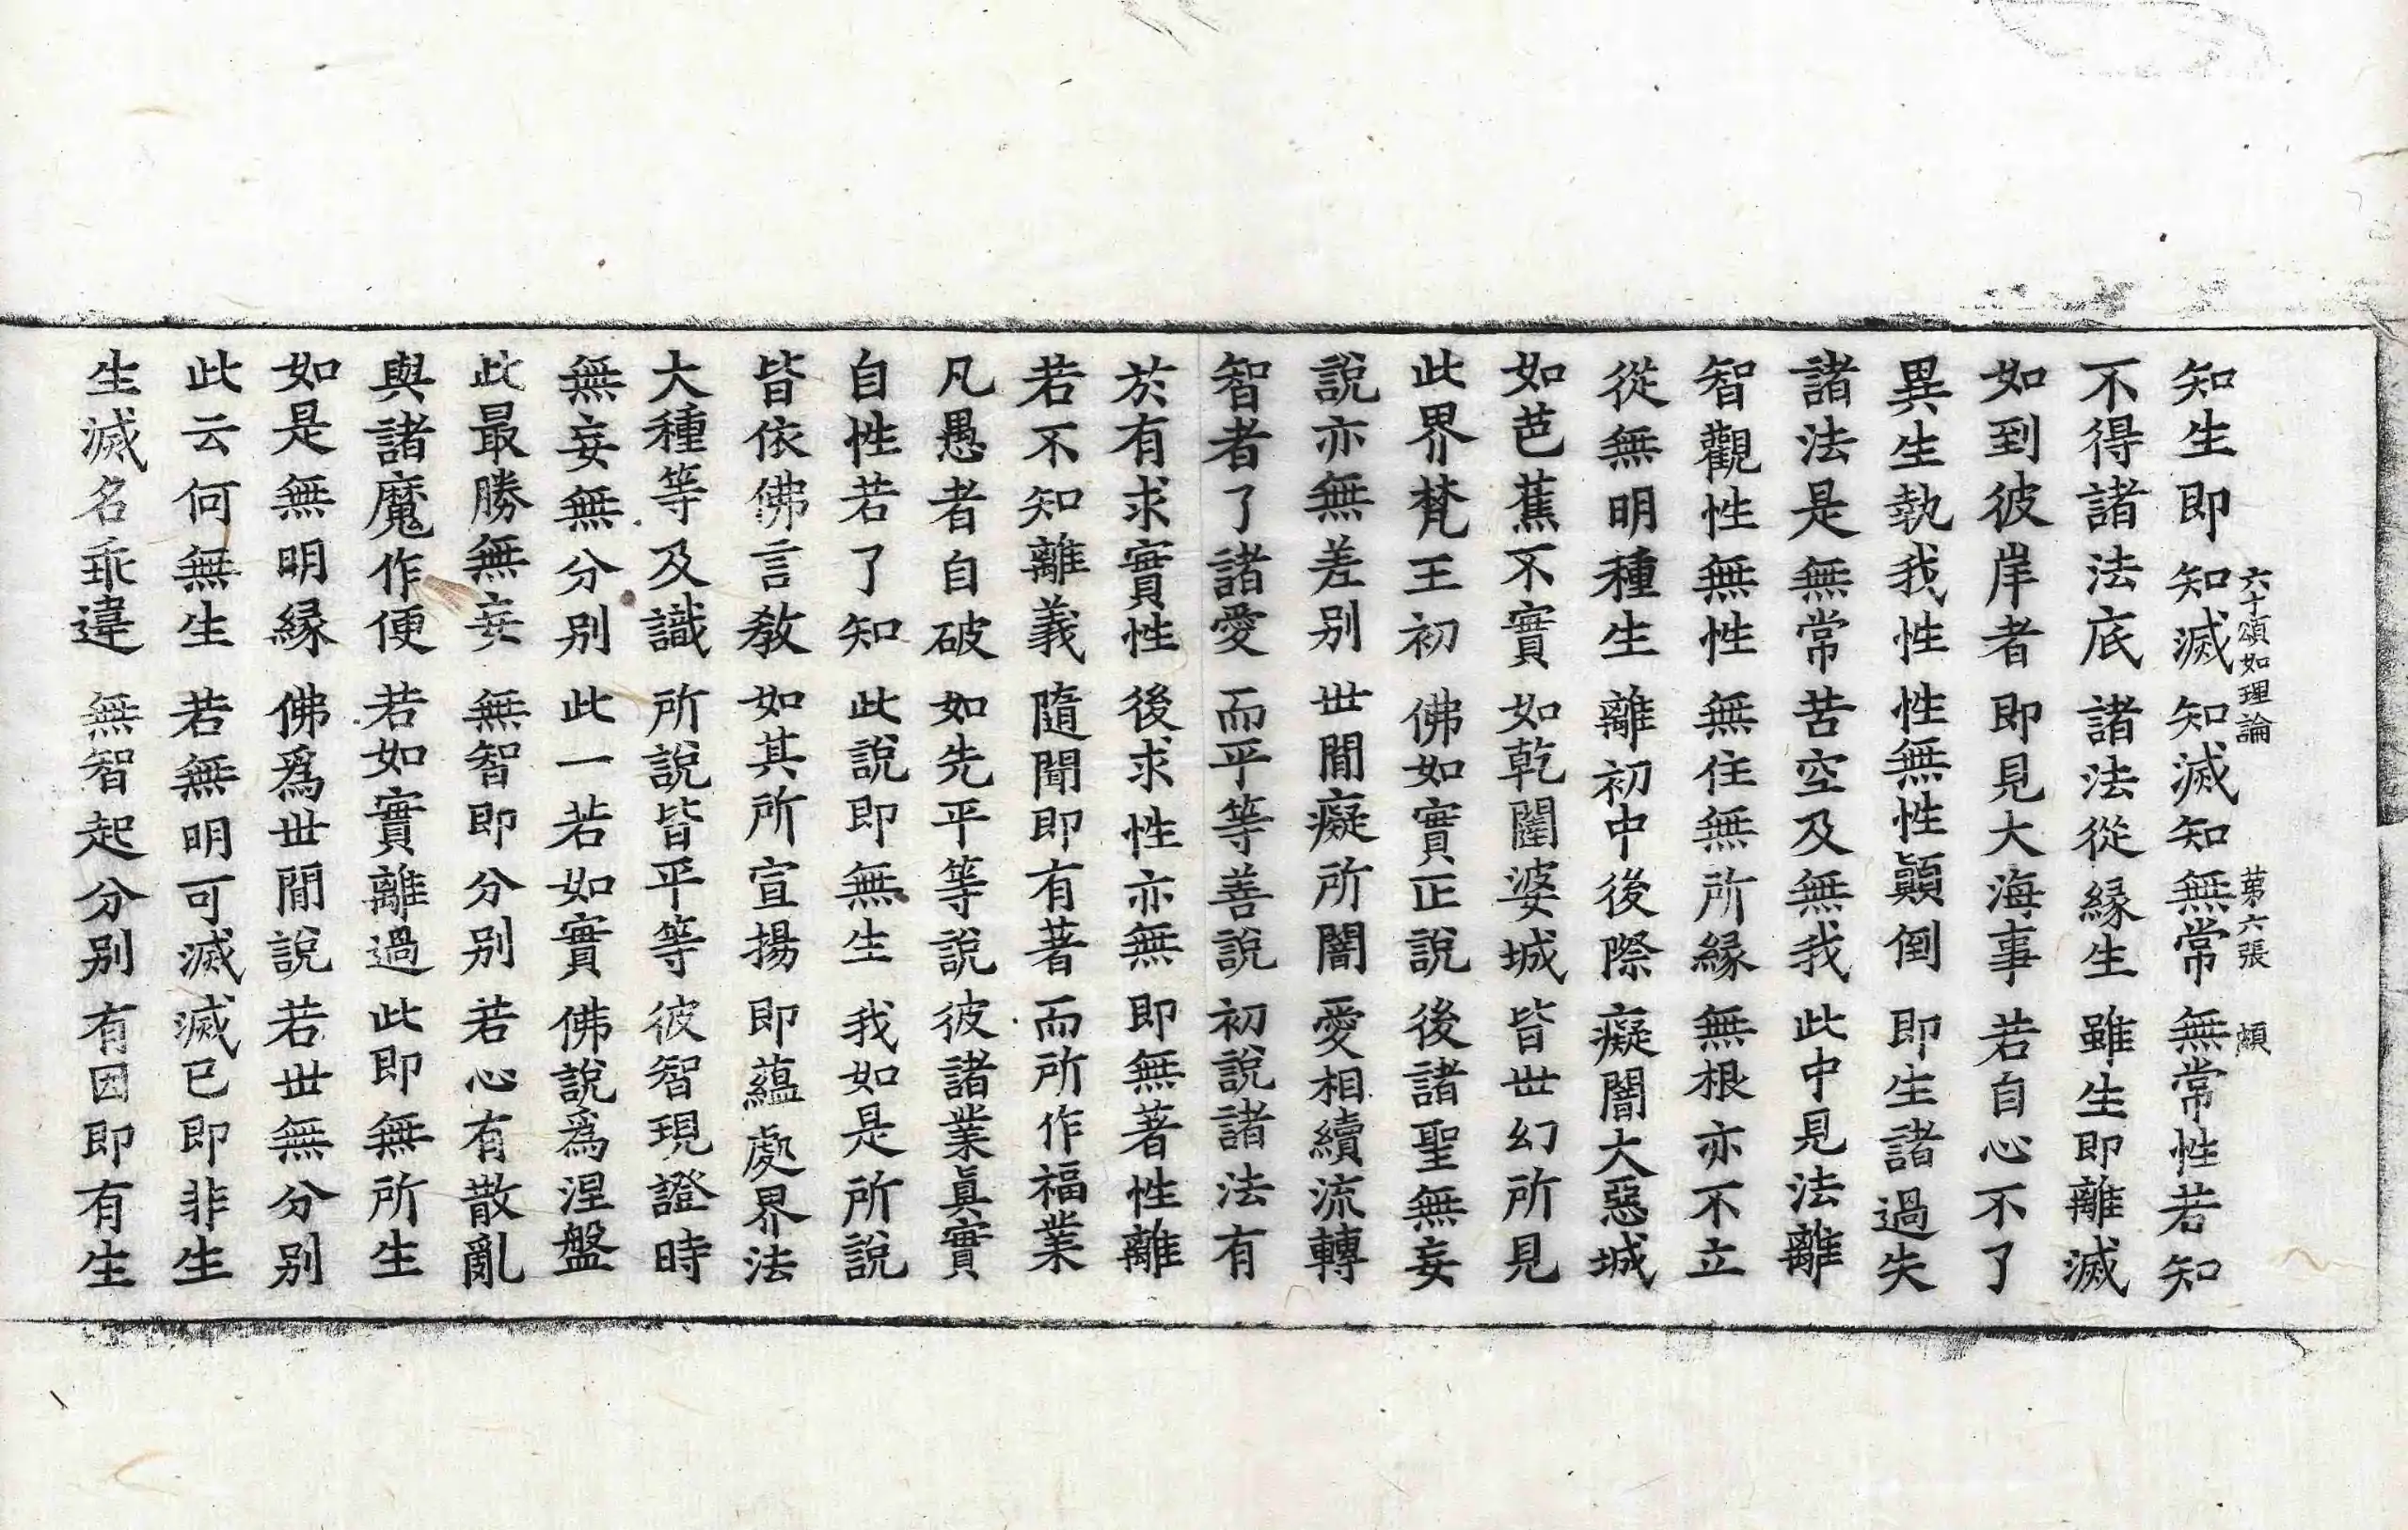 六十頌如理論 第六張 頗
知生即知滅 知滅知無常 無常性若知
不得諸法底 諸法從縁生 雖生即離滅
如到彼岸者 即見大海事 若自心不了
異生執我性 性無性顚倒 即生諸過失
諸法是無常 苦空及無我 此中見法離
智觀性無性 無住無所縁 無根亦不立
從無明種生 離初中後際 癡闇大惡城
如芭蕉不實 如乾闥婆城 皆世幻所見
此界梵王初 佛如實正說 後諸聖無妄
說亦無差別 世間癡所闇 愛相續流轉
智者了諸愛 而平等善說 初說諸法有
於有求實性 後求性亦無 即無著性離
若不知離義 隨聞即有著 而所作福業
凡愚者自破 如先平等說 彼諸業眞實
自性若了知 此說即無生 我如是所說
皆依佛言教 如其所宣揚 即蘊處界法
大種等及識 所說皆平等 彼智現證時
無妄無分別 此一若如實 佛說爲涅盤
此最勝無妄 無智即分別 若心有散亂
與諸魔作便 若如實離過 此即無所生
如是無明縁 佛爲世間說 若世無分別
此云何無生 若無明可滅 滅已即非生
生滅名乖違 無智起分別 有因即有生